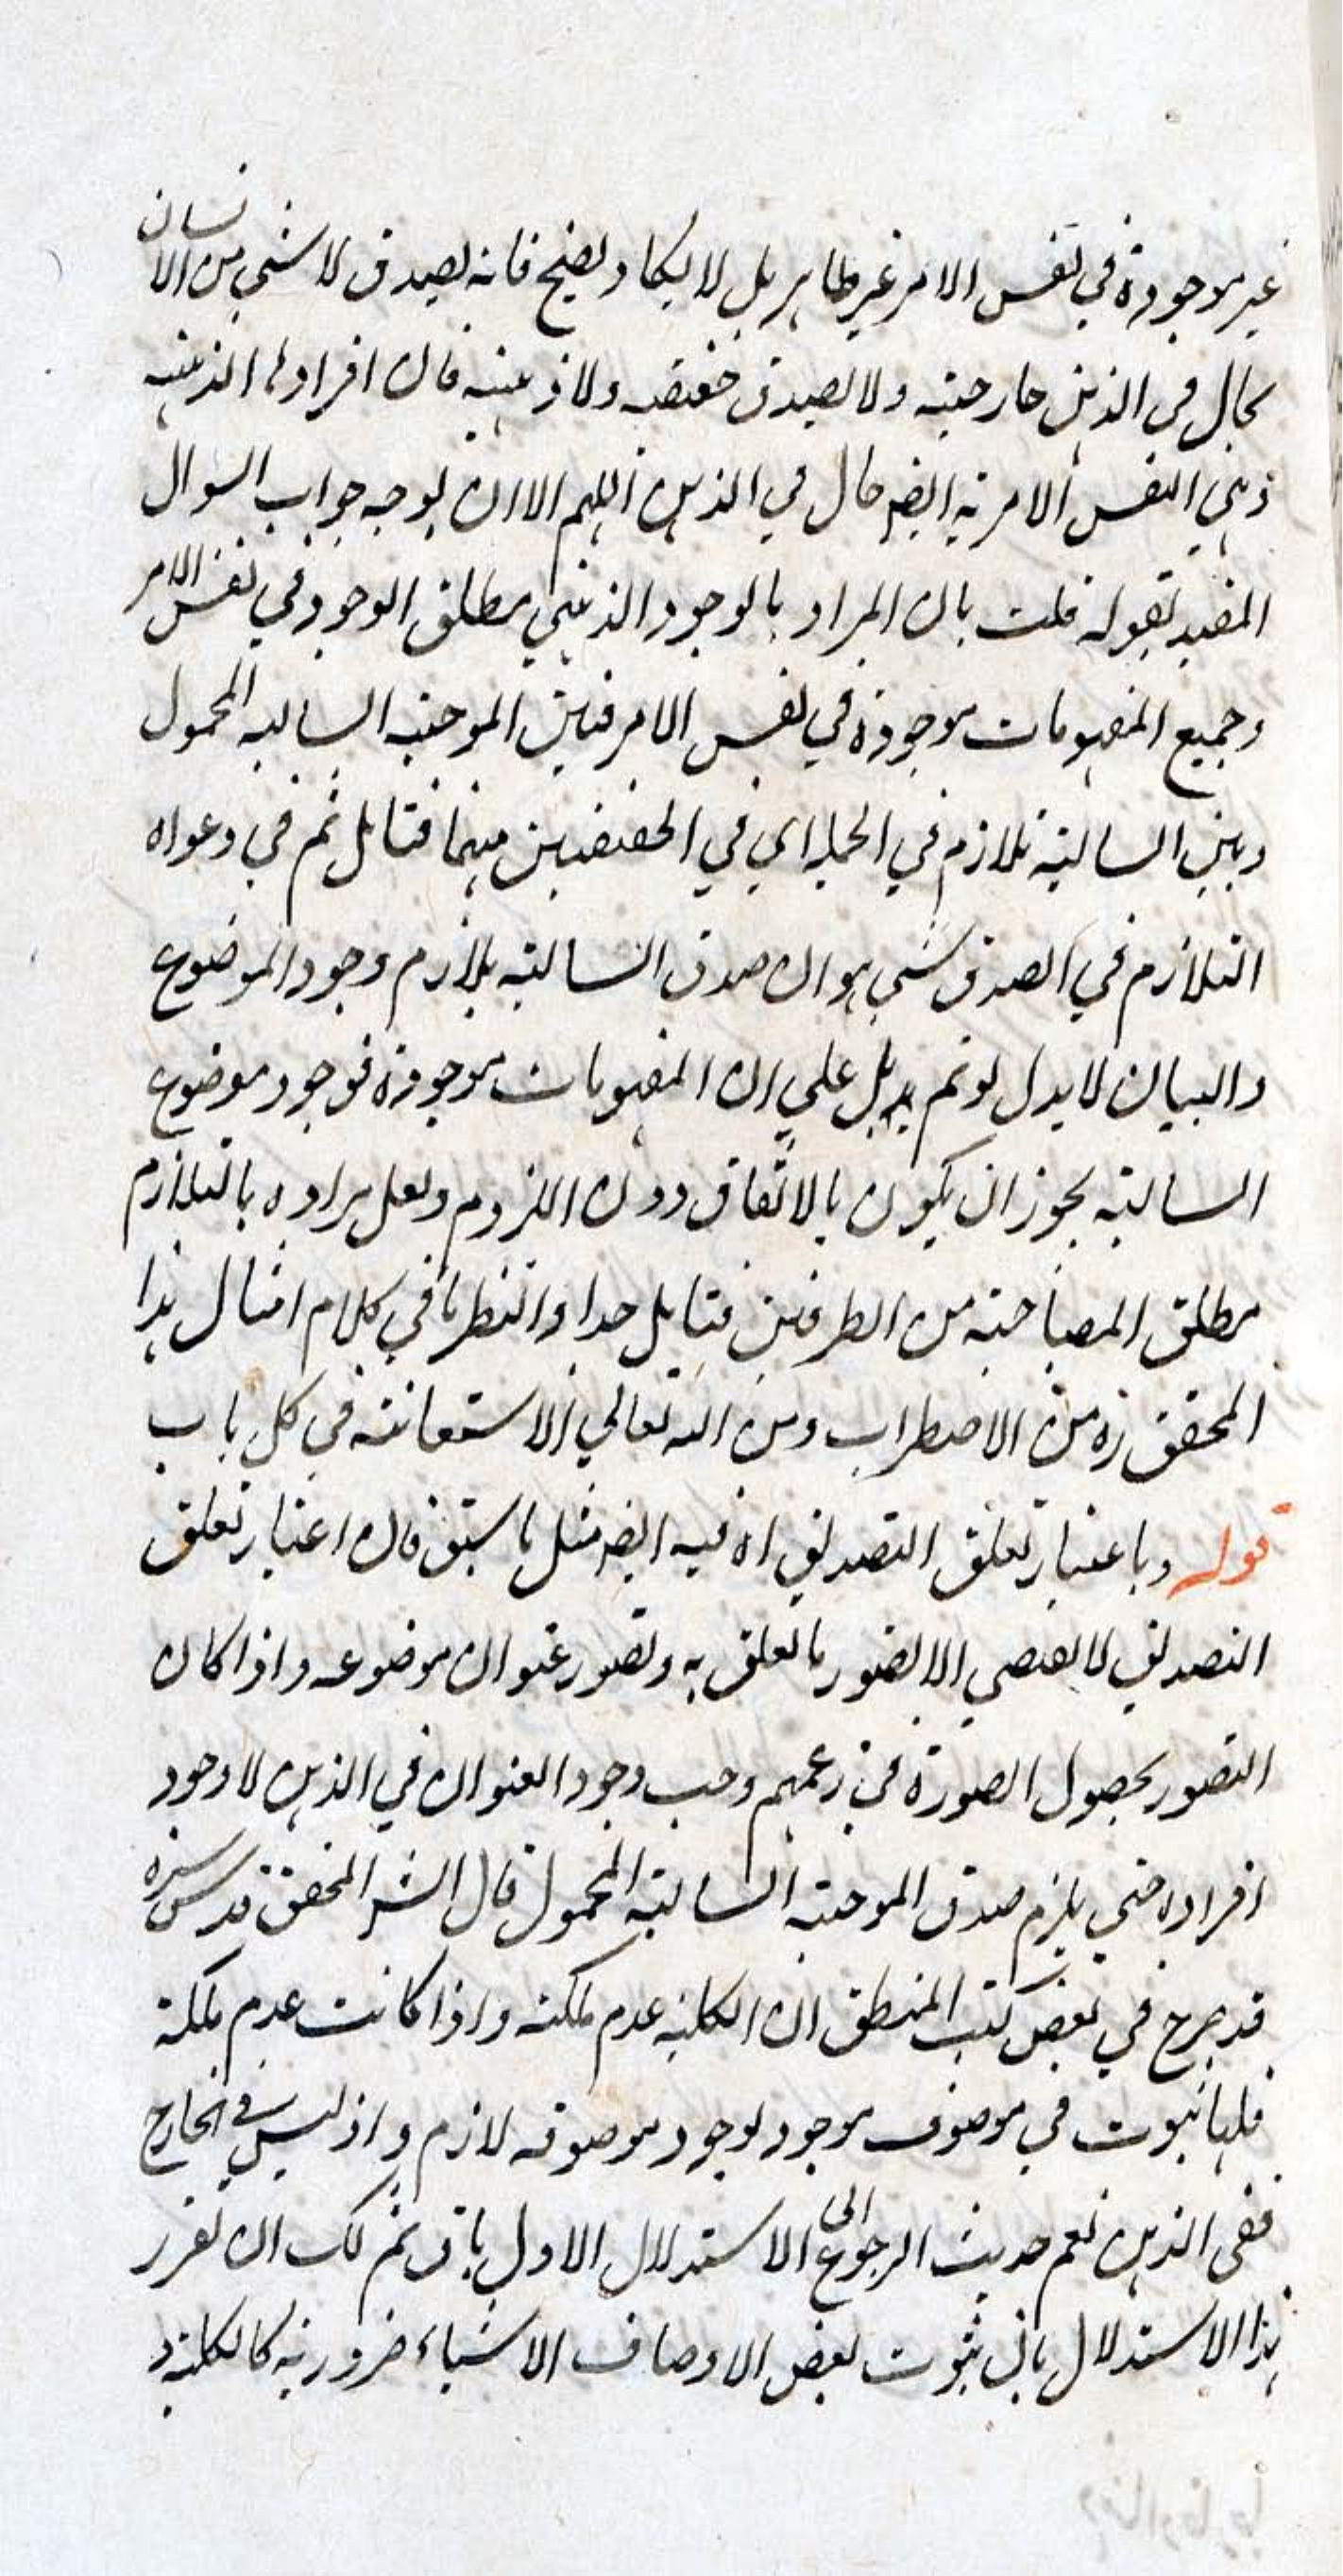 غير موجودة في نفس الامر غير ظاهر بل لا يكاد يصح فانه يصدق لا شي من الانسان
بحال في الذهن خارجية ولا يصدق حقيقية ولا ذهنية فان افرادها الذهنية
ذهني النفس الامرية ايضا حال في الذهن اللهم الا ان يوجه جواب السوال
المفيد بقوله قلت بان المراد بالوجود الذهني مطلق الوجود في نفس الامر
وجميع المفهومات موجودة في نفس الامر فبين الموجبة السالبة المحمول
وبين السالبة تلازم في الجملة اي في الحقيقيتين منهما فتامل ثم في دعواه
التلازم في الصدق شي هو ان صدق السالبة يلازم وجود الموضوع
والبيان لا يدل لو تم بل علي ان المفهومات موجودة فوجود موضوع
السالبة يجوز ان يكون بالاتفاق دون اللزوم ولعل مراده بالتلازم
مطلق المصاحبة من الطرفين فتامل جدا وانظر ما في كلام امثال هذا
المحقق ره من الاضطراب ومن الله تعالي الاستعانة في كل باب
قوله وباعتبار تعلق التصديق اه فيه ايضا مثل ما سبق فان اعتبار تعلق
التصديق لا يقتضي الا تصور ما تعلق به وتصور عنوان موضوعه واذا كان
التصور بحصول الصورة في زعمهم وجب وجود العنوان في الذهن لا وجود
افراده حتي يلزم صدق الموجبة السالبة المحمول قال الش المحقق قدس سره
قد صرح في بعض كتب المنطق ان الكلية عدم ملكة واذا كانت عدم ملكة
فلها ثبوت في موصوف موجود لوجود موصوفه لازم واذ ليس في الخارج
ففي الذهن نعم حديث الرجوع الي الاستدلال الاول باق ثم لك ان تقرر
هذا الاستدلال بان ثبوت بعض الاوصاف الاشياء ضرورية كالكلية و